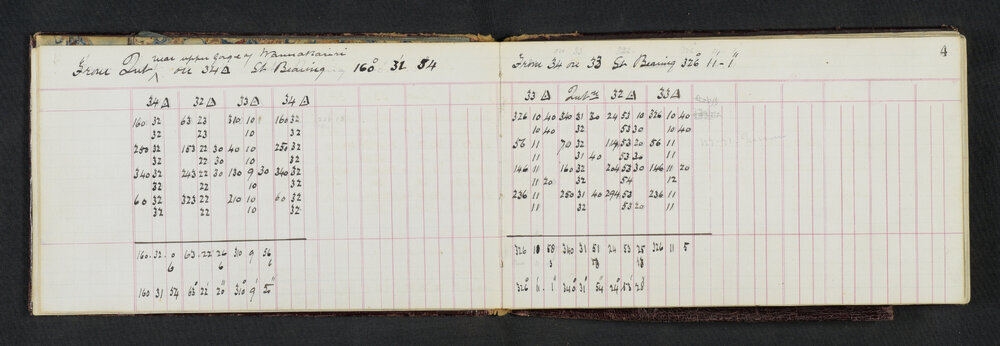 near upper gorge of Waimakariri
From Int on 34 △ St Bearing 160° 31' 54
34 △ 32 △ 33 △ 34 △
160 32 63 23 310 10 160 32
32 23 10 32
250 32 153 22 30 40 10 250 32
32 22 30 10 32
340 32 243 22 30 130 9 30 340 32
32 22 10 32
60 32 323 22 210 10 60 32
32 22 10 32
160. 32. 0 63. 22 26 310 9 56
6 6 6
160 31 54 63° 22' 20" 310° 9' 50"
4
From 34 on 33 St Bearing 326° 11' - 1"
33 △ Int 32 △ 33 △
326 10 40 340 31 30 24 53 10 326 10 40
10 40 32 53 30 10 40
56 11 70 32 114 53 20 56 11
11 31 40 53 30 11
146 11 160 32 204 53 30 146 11 20
11 20 32 54 12
236 11 250 31 40 294 53 236 11
11 32 53 20 11
326 10 58 340 31 51 24 53 25 326 11 5
3
326° 11' 1" 340° 31' 54" 24° 53' 28"